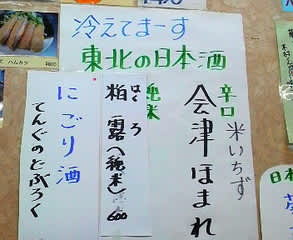 冷えてまーす
東北の日本酒
辛口
米いちず
会津ほまれ
純米
はくろ
粕露(純米)600
にごり酒
てんぐのどぶろく
ハムカツ